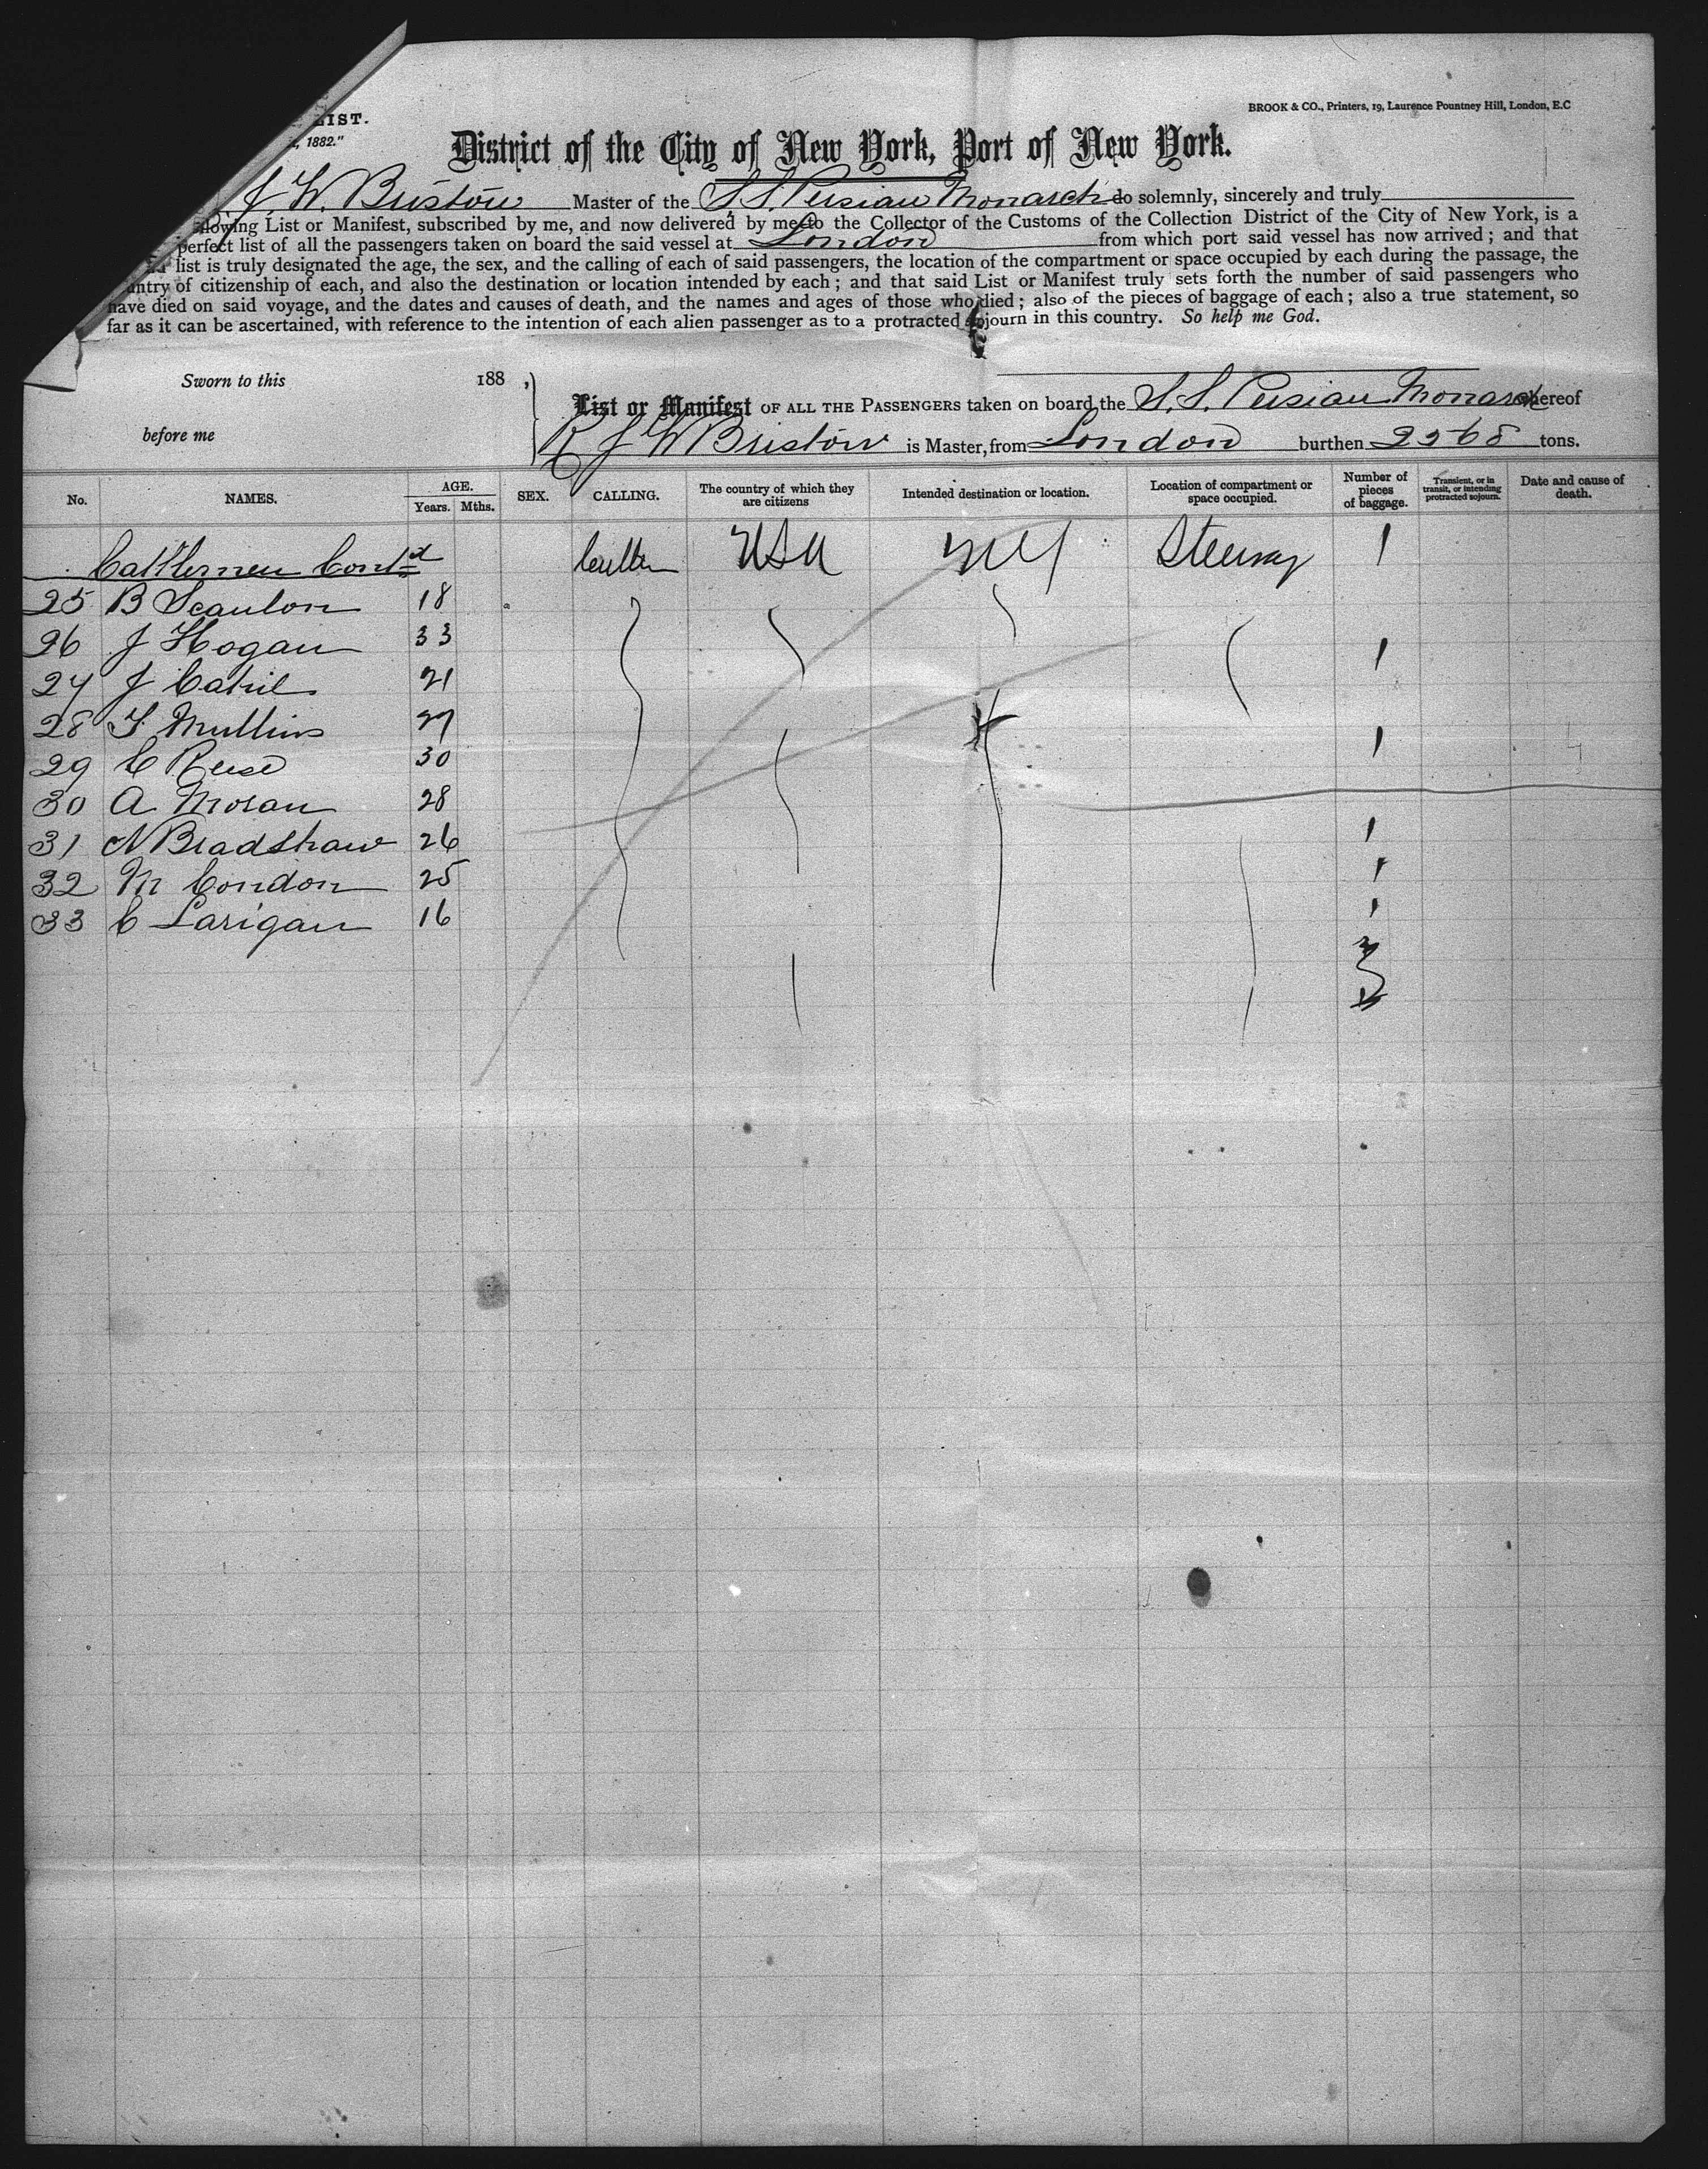 LIST.
1882."
BROOK & CO., Printers, 19, Laurence Pountney Hill, London, E.C
District of the City of New York, Port of New York.
J W. Bristow Master of the S.S. Persian Monarch do solemnly, sincerely and truly
List or Manifest, subscribed by me, and now delivered by me to the Collector of the Customs of the Collection District of the City of New York, is a
perfect list of all the passengers taken on board the said vessel at London from which port said vessel has now arrived; and that
list is truly designated the age, the sex, and the calling of each of said passengers, the location of the compartment or space occupied by each during the passage, the
of citizenship of each, and also the destination or location intended by each; and that said List or Manifest truly sets forth the number of said passengers who
have died on said voyage, and the dates and causes of death, and the names and ages of those who died; also of the pieces of baggage of each; also a true statement, so
far as it can be ascertained, with reference to the intention of each alien passenger as to a protracted sojourn in this country. So help me God.
Sworn to this 188 ,
before me
List or Manifest OF ALL THE PASSENGERS taken on board the S.S. Persian Monarch whereof
J W Bristow is Master, from London burthen 2568 tons.
No. NAMES. AGE. Years. Mths. SEX. CALLING. The country of which they are citizens Intended destination or location. Location of compartment or space occupied. Number of pieces of baggage. Transient, or in transit, or intending protracted sojourn. Date and cause of death.
Cattlemen Contd USA NY Steerage 1
25 B Scanlon 18
26 J Hogan 33 1
27 J Cahil 21
28 T Mullins 27 1
29 C Reese 30
30 A Moran 28
31 N Bradshaw 26 1
32 M Condon 25 1
33 C Larigan 16 1